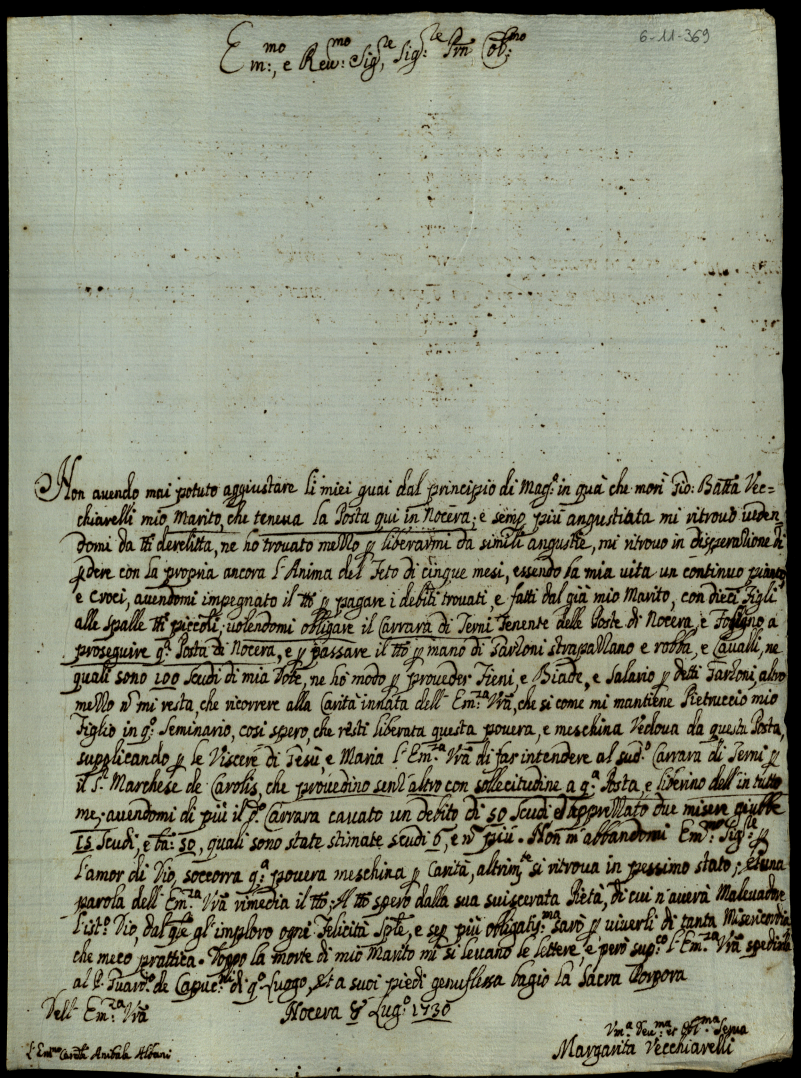 6-11-369
Em:mo, e Reu:mo Sig,re Sig:re Pne Ob:mo
Non auendo mai potuto aggiustare li miei guai dal principio di Mag:o in quà che morì Gio: Batta Vec=
chiarelli mio Marito, che teneua la Posta qui in Nocera; e semp più angustiata mi ritrouo ueden
domi da tti derelitta, ne ho trouato mezzo p liberarmi da simili angustie, mi ritrouo in disperazione di
pdere con la propria ancora l'Anima del Feto di cinque mesi, essendo la mia vita un continuo pianto,
e Croci, auendomi impegnato il tto p pagare i debiti trouati, e fatti dal già mio Marito, con dieci Figli
alle spalle tti piccoli; uolendomi obligare il Carrara di Terni Tenente delle Poste di Nocera, e Foligno, a
proseguire q:a Posta di Nocera, e p passare il tto p mano di Garzoni strapazzano e robba, e Caualli, ne
quali sono 100 Scudi di mia Dote, ne ho modo p proueder Fieni, e Biade, e Salario p detti Garzoni, altro
mezzo n mi resta, che ricorrere alla Carità innata dell' Em:za Vra, che si come mi mantiene Pietruccio mio
Figlio in q:o Seminario, così spero, che resti liberata questa pouera, e meschina Vedoua da questa Posta,
supplicando p le Viscere di Gesù, e Maria l'Em:za Vra di far intendere al sud:o Carrara di Terni p
il S:r Marchese de Carolis, che prouedino senz'altro con sollecitudine a q:a Posta, e liberino dell'in tutto
me, auendomi di più il d:o Carrara cauato un debito di 50 Scudi ed apprezzato due misere giubbe
15 Scudi, e ba: 50, quali sono state stimate scudi 6, e n più. Non m'abbandoni Em:mo Sig:re p
l'amor di Dio, soccorra q:a pouera meschina p Carità, altrim:te si ritroua in pessimo stato; et una
parola dell' Em:za Vra rimedia il tto; Al tto spero dalla sua suiscerata Pietà, di cui n'auerà Maleuadore
l'ist:o Dio, dal q:le gl'imploro ogni Felicità Sple, e sep più obligatis:ma sarò p uiuerli di tanta Misericordia
che meco prattica. Doppo la morte di mio Marito mi si leuano le lettere, e però sup:co l'Em:za Vra spedirle
al P. Guard:o de Capuc:ni di q:o Luogo, et a suoi piedi genuflessa bagio la Sacra Porpora
Dell' Em:za Vra Nocera 8 Lug:o 1730
Vm:a Deu:ma et Obl:ma Serua
l'Em:mo Card:le Anibale Albani Margarita Vecchiarelli